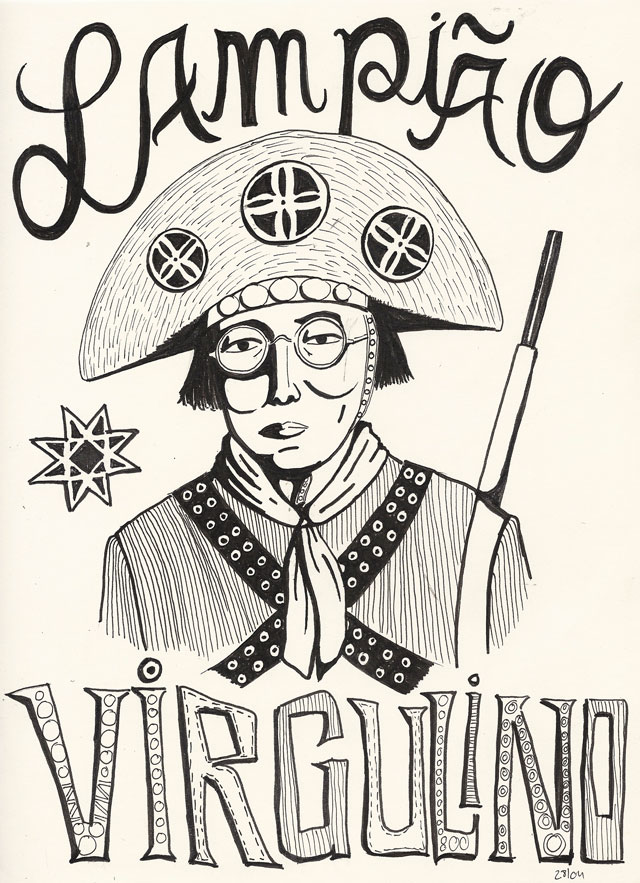 LAmpião
ViRGULiNO
28/04